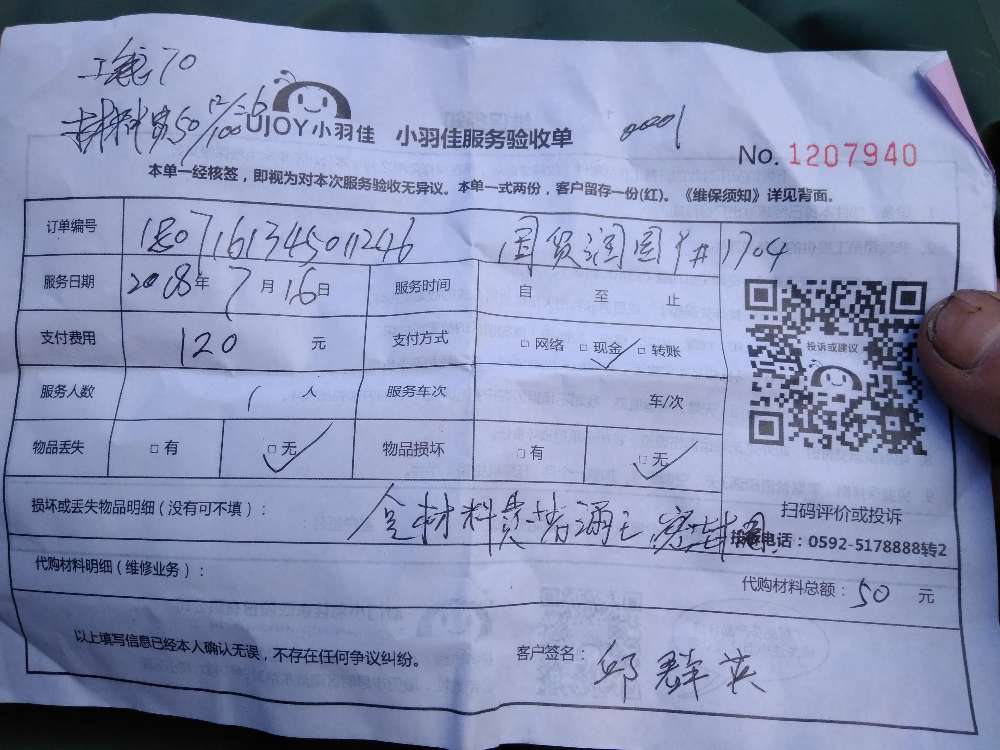 工钱70
材料费50
UJOY小羽佳 小羽佳服务验收单
No. 1207940
本单一经核签，即视为对本次服务验收无异议。本单一式两份，客户留存一份(红)。《维保须知》详见背面。
订单编号 180716134501246 国贸润园 1704
服务日期 2018年7月16日 服务时间 自 至 止
支付费用 120 元 支付方式 □网络 □现金✓ □转账
投诉或建议
服务人数 1 人 服务车次 车/次
物品丢失 □有 □无✓ 物品损坏 □有 □无✓
扫码评价或投诉
损坏或丢失物品明细（没有可不填）： 含材料费
电话：0592-5178888转2
代购材料明细（维修业务）： 代购材料总额：50 元
以上填写信息已经本人确认无误，不存在任何争议纠纷。 客户签名：邱群英